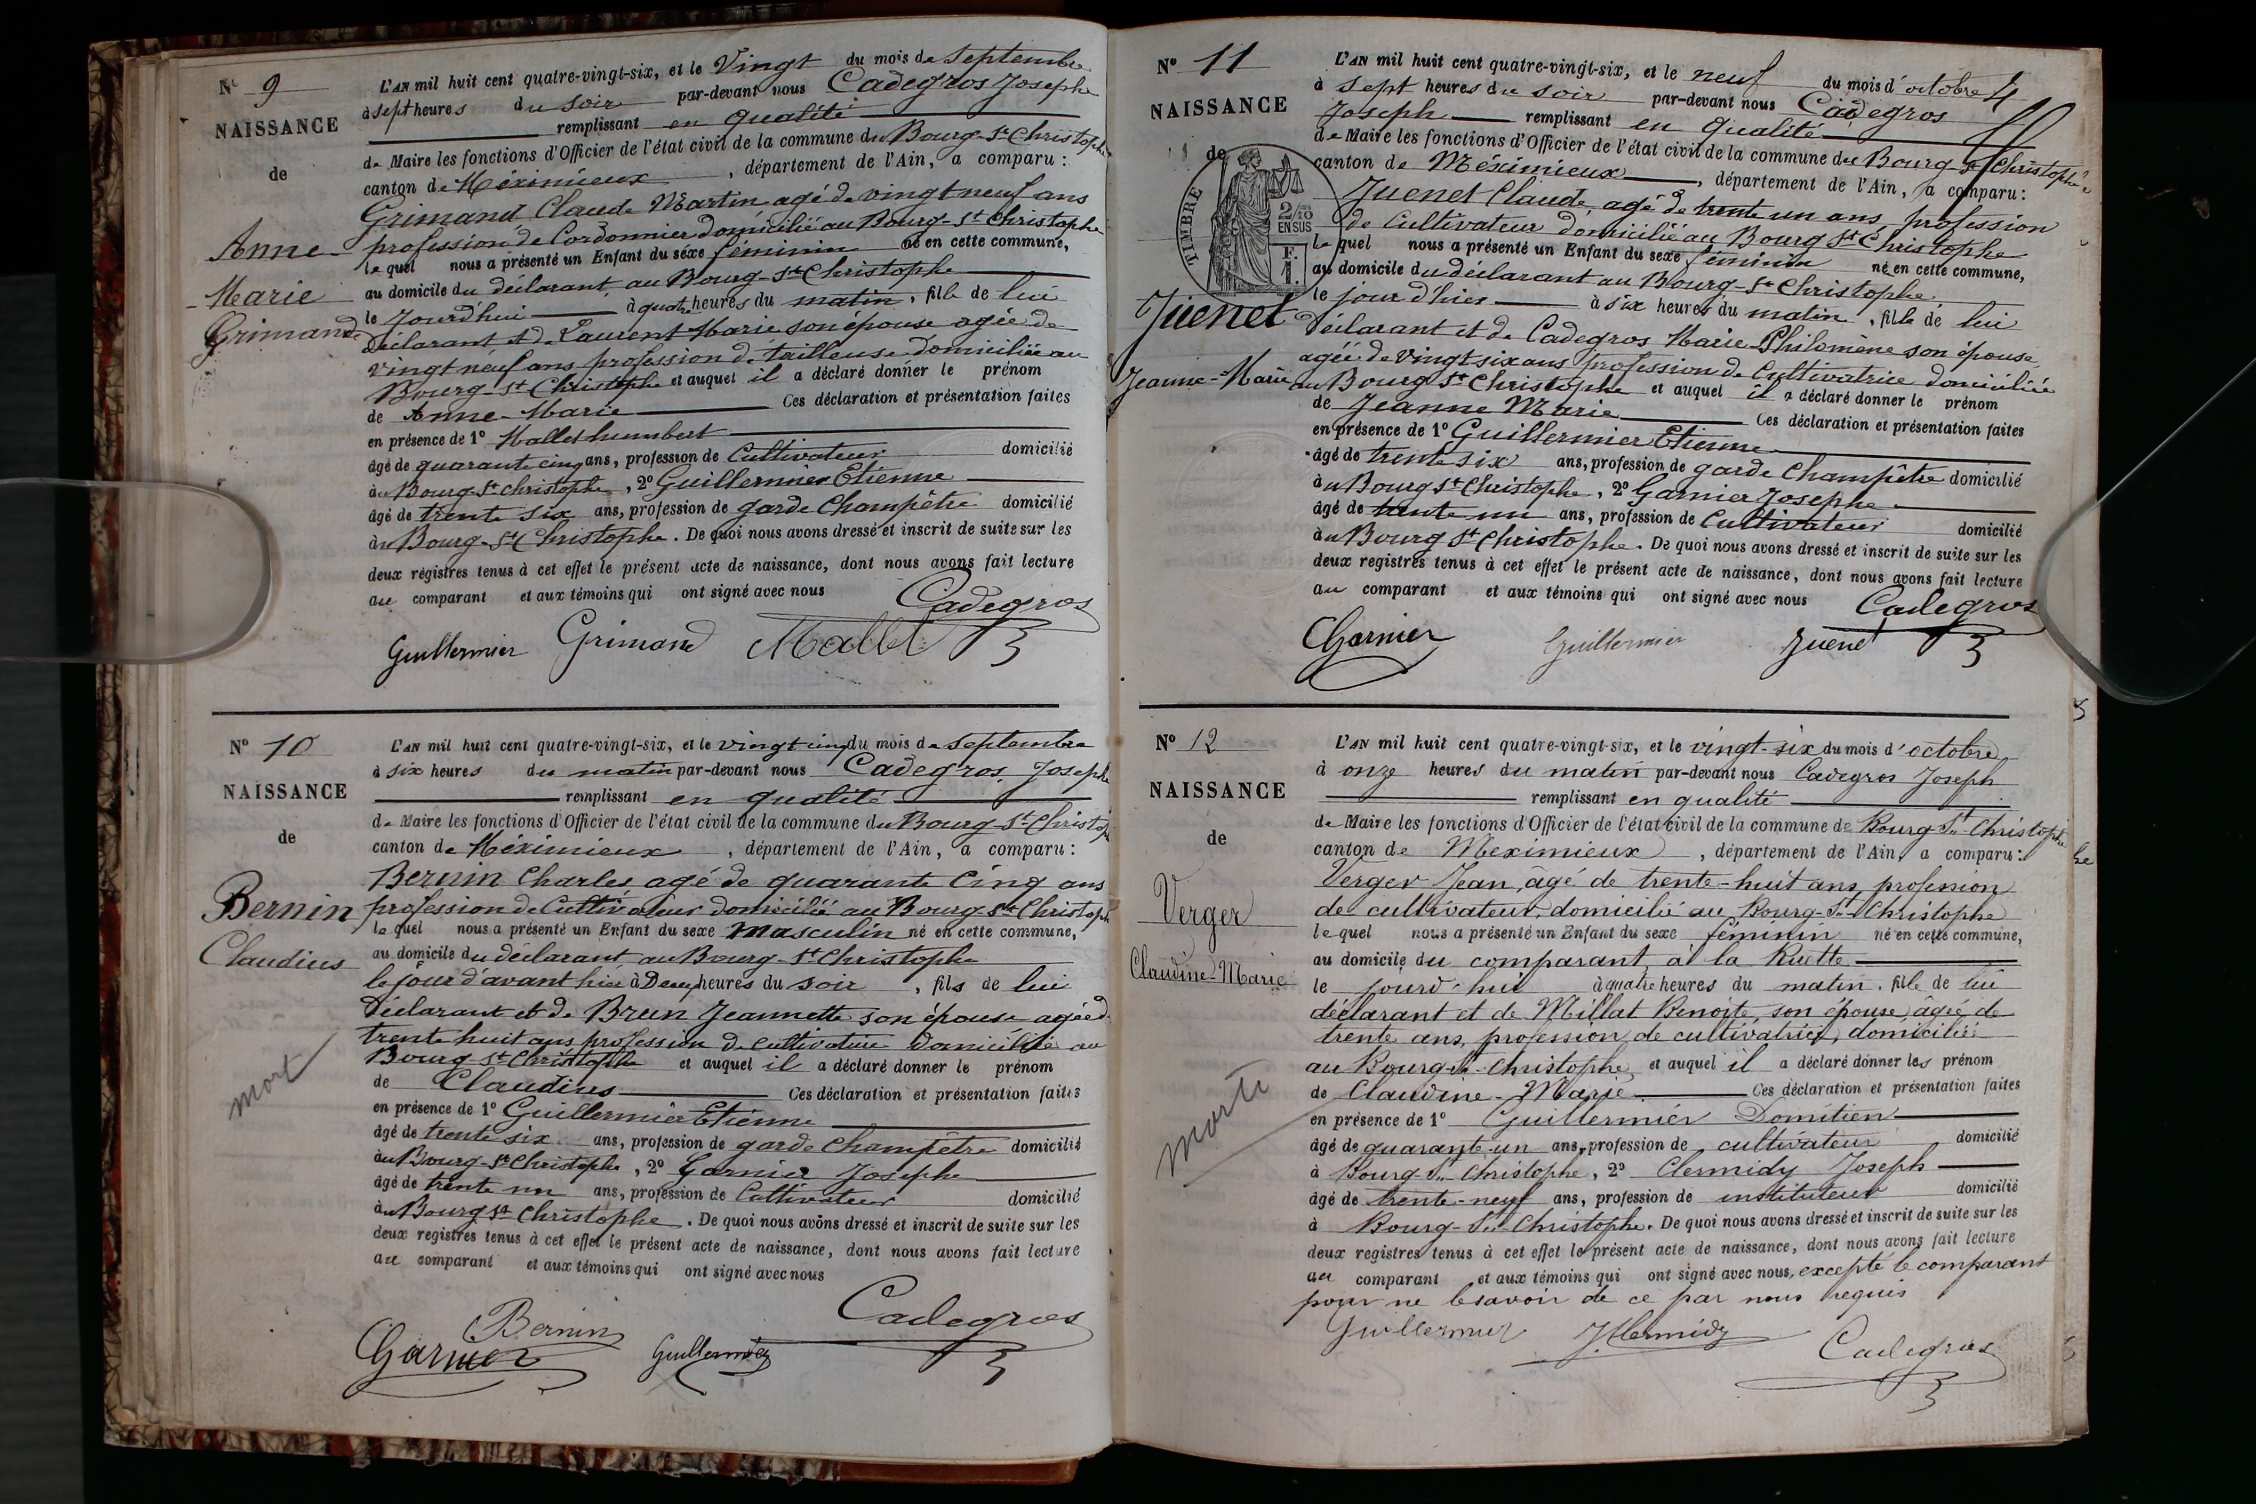 N° 9
NAISSANCE
de
Anne-
Marie
Grimand
L'AN mil huit cent quatre-vingt-six, et le Vingt du mois de Septembre
à sept heures du soir par-devant nous Cadegros Joseph
remplissant en qualité
de Maire les fonctions d'Officier de l'état civil de la commune du Bourg-St Christophe
canton de Méximieux, département de l'Ain, a comparu :
Grimand Claude Martin agé de vingt neuf ans
profession de Cordonnier domicilié au Bourg-St Christophe
lequel nous a présenté un Enfant du séxe féminin né en cette commune,
au domicile du déclarant au Bourg-St Christophe
le jourd'hui à quatre heures du matin, fille de lui
déclarant et de Laurent Marie son épouse agée de
vingt neuf ans profession de tailleuse domiciliée au
Bourg-St Christophe et auquel il a déclaré donner le prénom
de Anne-Marie Ces déclaration et présentation faites
en présence de 1° Mallet humbert
âgé de quarante cinq ans, profession de Cultivateur domicilié
àu Bourg-St Christophe, 2° Guillermier Etienne
âgé de trente six ans, profession de garde Champêtre domicilié
àu Bourg-St Christophe. De quoi nous avons dressé et inscrit de suite sur les
deux registres tenus à cet effet le présent acte de naissance, dont nous avons fait lecture
au comparant et aux témoins qui ont signé avec nous Cadegros
Guillermier Grimand Mallet
N° 10
NAISSANCE
de
Bernin
Claudius
mort
L'AN mil huit cent quatre-vingt-six, et le vingt cinq du mois de septembre
à six heures du matin par-devant nous Cadegros Joseph
remplissant en qualité
de Maire les fonctions d'Officier de l'état civil de la commune du Bourg-St-Christop
canton de Méximieux, département de l'Ain, a comparu :
Bernin Charles, agé de quarante Cinq ans
profession de Cultivateur domicilié au Bourg-St Christoph
lequel nous a présenté un Enfant du sexe masculin né en cette commune,
au domicile du déclarant au Bourg-St Christophe
le jour d'avant hier à Deux heures du soir, fils de lui
déclarant et de Brun Jeannette son épouse agée de
trente huit ans profession de cultivatrice domiciliée au
Bourg St Christophe et auquel il a déclaré donner le prénom
de Claudius Ces déclaration et présentation faites
en présence de 1° Guillermier Etienne
âgé de trente six ans, profession de garde Champêtre domicilié
àu Bourg-St Christophe, 2° Garnier Joseph
âgé de trente un ans, profession de Cultivateur domicilié
àu Bourg St Christophe. De quoi nous avons dressé et inscrit de suite sur les
deux registres tenus à cet effet le présent acte de naissance, dont nous avons fait lecture
au comparant et aux témoins qui ont signé avec nous
Cadegros
Bernin
Garnier Guillermier
N° 11
NAISSANCE
de
TIMBRE
2/10
EN SUS
F.
1.
Juenet
Jeanne-Marie
L'AN mil huit cent quatre-vingt-six, et le neuf du mois d'octobre
à sept heures du soir par-devant nous Cadegros
Joseph remplissant en qualité
de Maire les fonctions d'Officier de l'état civil de la commune du Bourg-St Christophe
canton de Méximieux, département de l'Ain, a comparu :
Juenet Claude, agé de trente un ans, profession
de Cultivateur domicilié au Bourg St Christophe
lequel nous a présenté un Enfant du sexe féminin né en cette commune,
au domicile du déclarant au Bourg-St Christophe,
le jour d'hier à six heures du matin, fille de lui
déclarant et de Cadegros Marie Philomène son épouse
agée de vingt six ans profession de Cultivatrice domiciliée
au Bourg St Christophe et auquel il a déclaré donner le prénom
de Jeanne Marie Ces déclaration et présentation faites
en présence de 1° Guillermier Etienne
âgé de trente six ans, profession de garde Champêtre domicilié
àu Bourg St Christophe, 2° Garnier Joseph
âgé de trente un ans, profession de Cultivateur domicilié
àu Bourg St Christophe. De quoi nous avons dressé et inscrit de suite sur les
deux registres tenus à cet effet le présent acte de naissance, dont nous avons fait lecture
au comparant et aux témoins qui ont signé avec nous Cadegros
Garnier Guillermier Juenet
N° 12
NAISSANCE
de
Verger
Claudine-Marie
morte
L'AN mil huit cent quatre-vingt-six, et le vingt-six du mois d'octobre
à onze heures du matin par-devant nous Cadegros Joseph
remplissant en qualité
de Maire les fonctions d'Officier de l'état civil de la commune de Bourg-St-Christophe
canton de Meximieux, département de l'Ain, a comparu :
Verger Jean, âgé de trente-huit ans, profession
de cultivateur, domicilié au Bourg-St-Christophe
lequel nous a présenté un Enfant du sexe féminin né en cette commune,
au domicile du comparant, à la Ruette
le jourd'hui à quatre heures du matin, fille de lui
déclarant et de Millat Benoite, son épouse, âgée de
trente ans, profession de cultivatrice, domiciliée
au Bourg-St-Christophe, et auquel il a déclaré donner les prénom
de Claudine-Marie Ces déclaration et présentation faites
en présence de 1° Guillermier Domitien
âgé de quarante-un ans, profession de cultivateur domicilié
à Bourg-St-Christophe, 2° Clermidy Joseph
âgé de trente-neuf ans, profession de instituteur domicilié
à Bourg-St-Christophe. De quoi nous avons dressé et inscrit de suite sur les
deux registres tenus à cet effet le présent acte de naissance, dont nous avons fait lecture
au comparant et aux témoins qui ont signé avec nous, excepté le comparant
pour ne le savoir de ce par nous requis
Guillermier J. Clermidy Cadegros